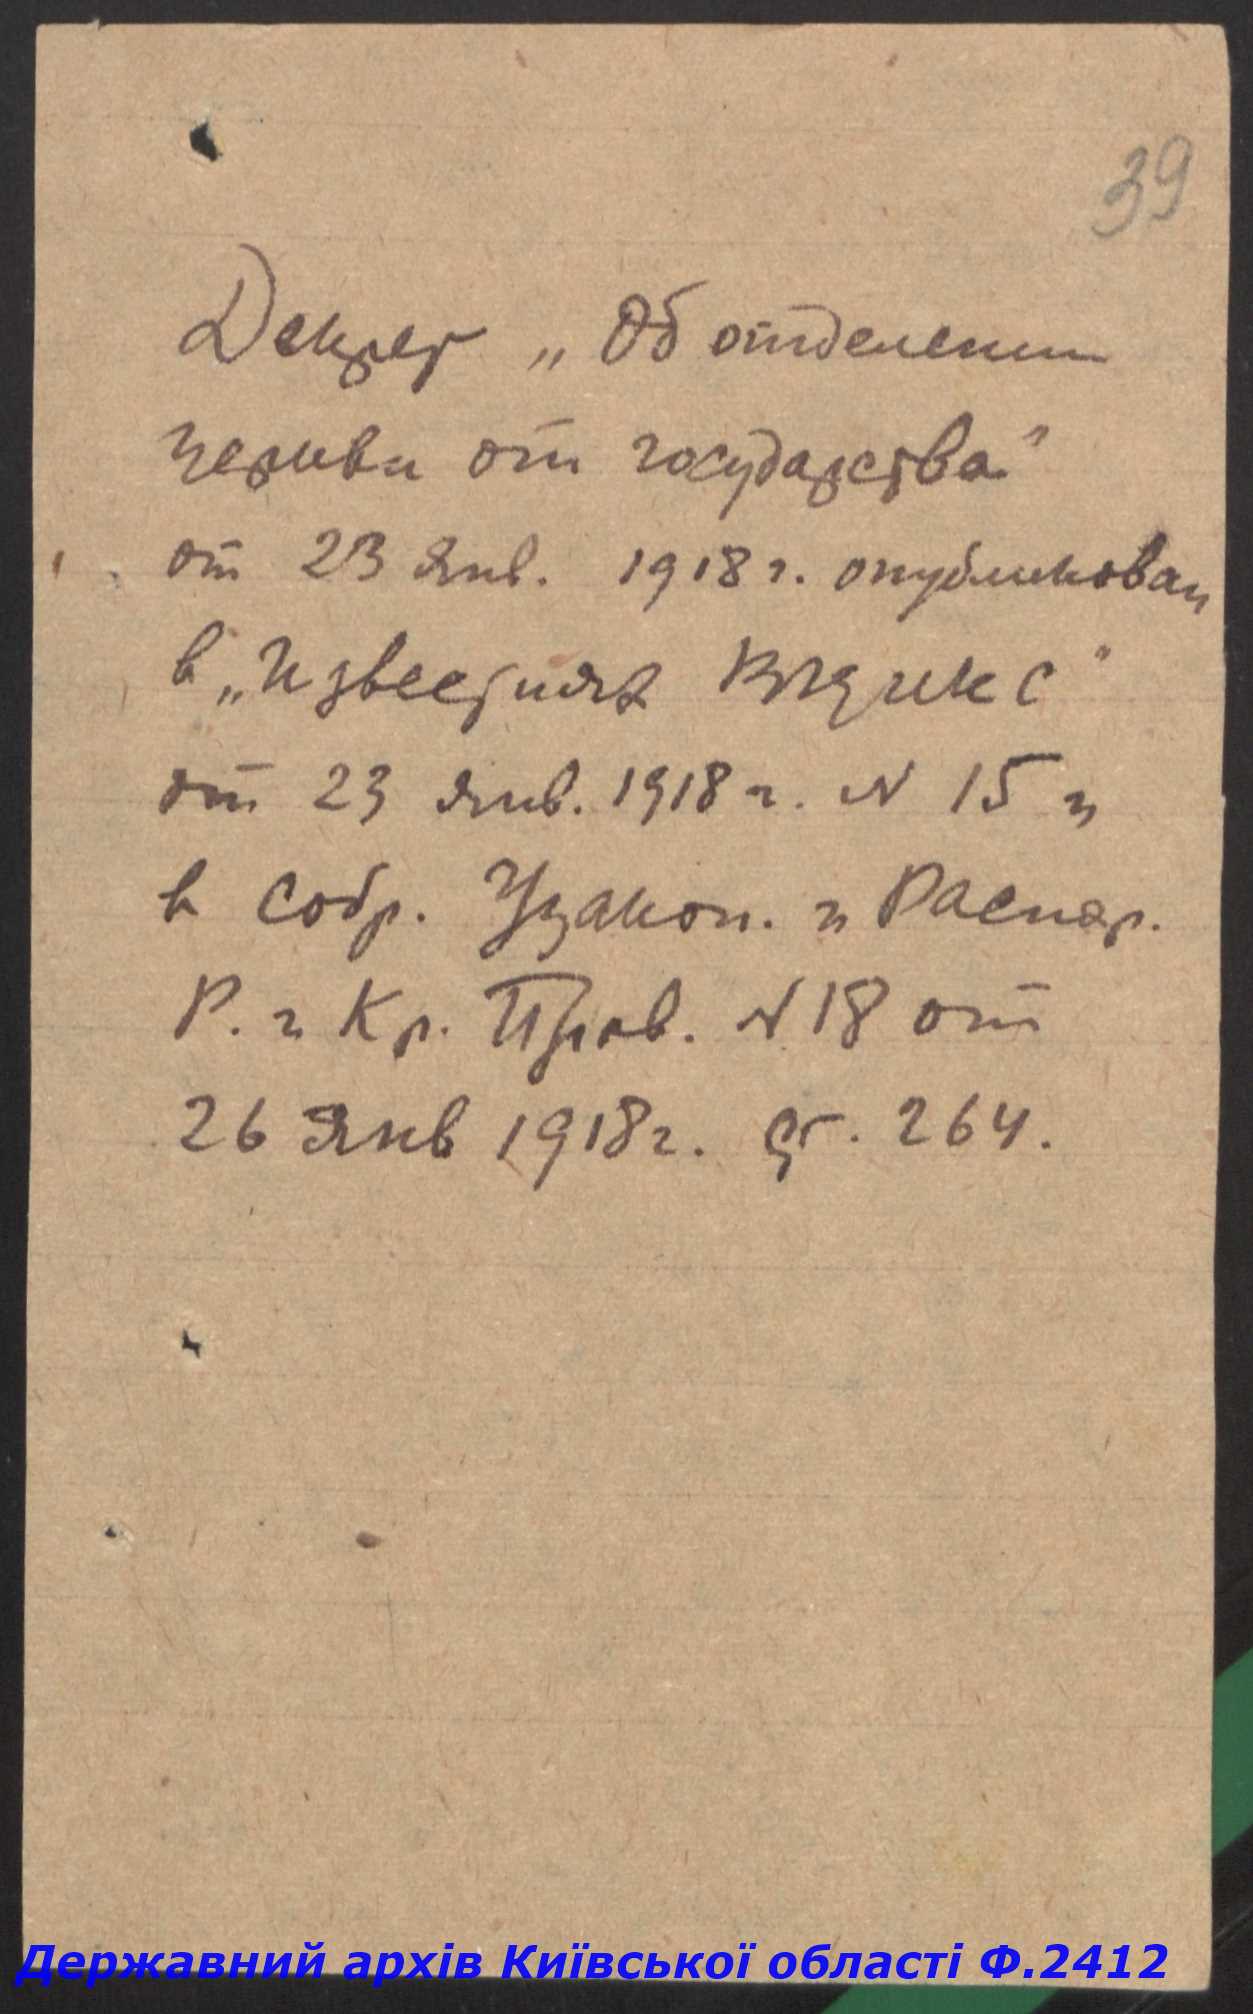 39
Декрет „Об отделении
церкви от государства"
от 23 Янв. 1918 г. опубликован
в „Известиях ВЦИКС"
от 23 янв. 1918 г. N 15 и
в Собр. Узакон. и Распор.
Р. и Кр. Прав. N 18 от
26 Янв 1918 г. ст. 264.
Державний архів Київської області Ф.2412